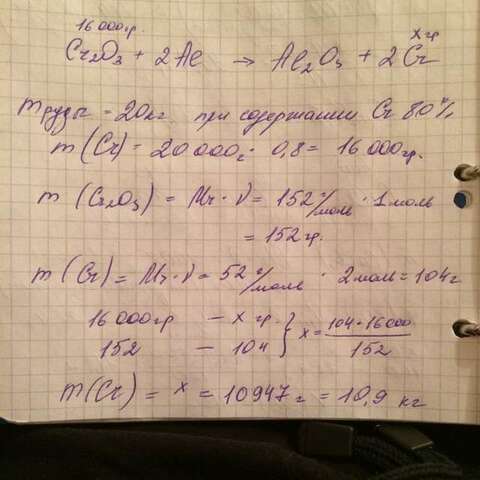 16 000гр. x гр
Cr₂O₃ + 2Al → Al₂O₃ + 2Cr
m руды = 20 кг. при содержании Cr 80%
m (Cr) = 20 000г · 0,8 = 16 000гр.
m (Cr₂O₃) = Mr · ν = 152 г/моль · 1 моль
= 152 гр.
m (Cr) = Mr · ν = 52 г/моль · 2 моль = 104 г
16 000гр — x гр. } x = 104 · 16000
152 — 104 152
m(Cr) = x = 10947 г = 10,9 кг